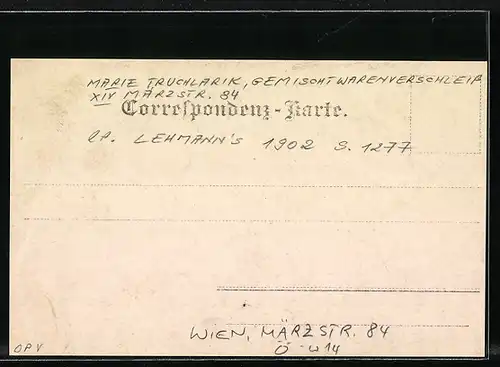 MARIE TRUCHLARIK, GEMISCHTWARENVERSCHLEIß
XIV MÄRZSTR. 84
Correspondenz-Karte.
LEHMANN's 1902 S. 1277
WIEN, MÄRZSTR. 84
Ö-W14
OPV